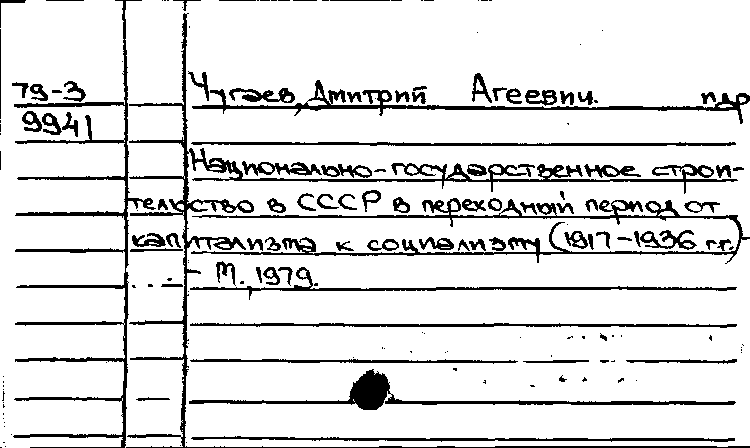 79-3 Чугаев, Дмитрий Агеевич. и др
9941
Национально-государственное строи-
тельство в СССР в переходный период от
капитализма к социализму (1917-1936 гг.)-
- М., 1979.